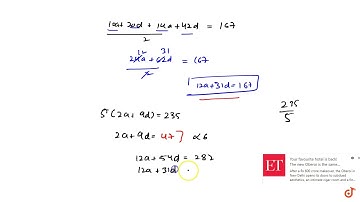 10a + 20d + 14a + 42d = 167
2
12 31
24a + 62d = 167
2
12a + 31d = 167
5 (2a + 9d) = 235
2a + 9d = 47] x6
235
5
12a + 54d = 282
12a + 31d
ET
Your favourite hotel is back!
The new Oberoi in the same...